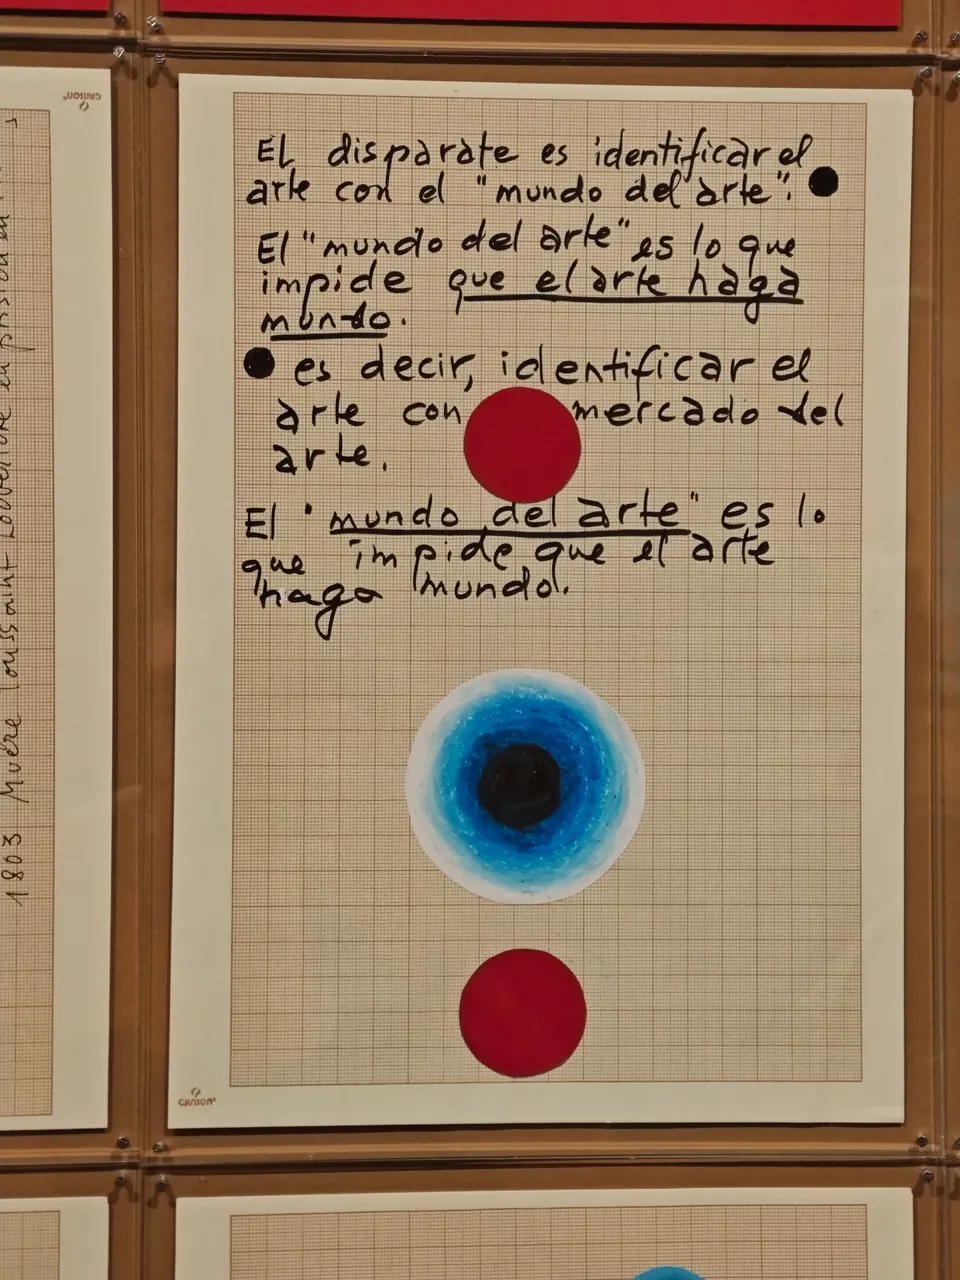 CANSON
El disparate es identificar el
arte con el "mundo del arte".
El "mundo del arte" es lo que
impide que el arte haga
mundo.
es decir, identificar el
arte con mercado del
arte.
El "mundo del arte" es lo
que impide que el arte
haga mundo.
CANSON
1803 Muere Toussaint Louverture en prisión en